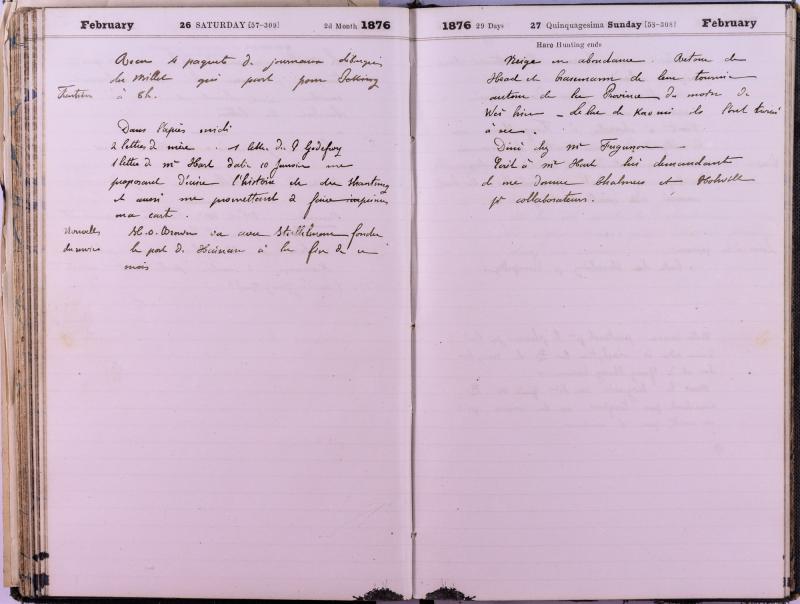 February 26 SATURDAY [57-309] 2d Month 1876
4 paquet de journaux
du Millet qui part pour Peking
Tientsin à 8h.
Dans l'après midi
2 lettres de mère . 1 lettre de P Godefroy
1 lettre de Mr Hart date 10 Janvier me
proposant d'écrire l'histoire et du Shantung
et aussi me promettant de faire imprimer
ma carte .
Nouvelles H. O. Brown va avec fonder
du service le port de Hainan à la fin de ce
mois
1876 29 Days 27 Quinquagesima Sunday [58-308] February
Hare Hunting ends
Neige en abondance . Retour de
Head et de leur tournée
autour de la Province de
Wei hien
à
Diné chez Mr Ferguson
Ecrit à Mr Hart lui demandant
de me donner Chalmers et
pr collaborateurs .